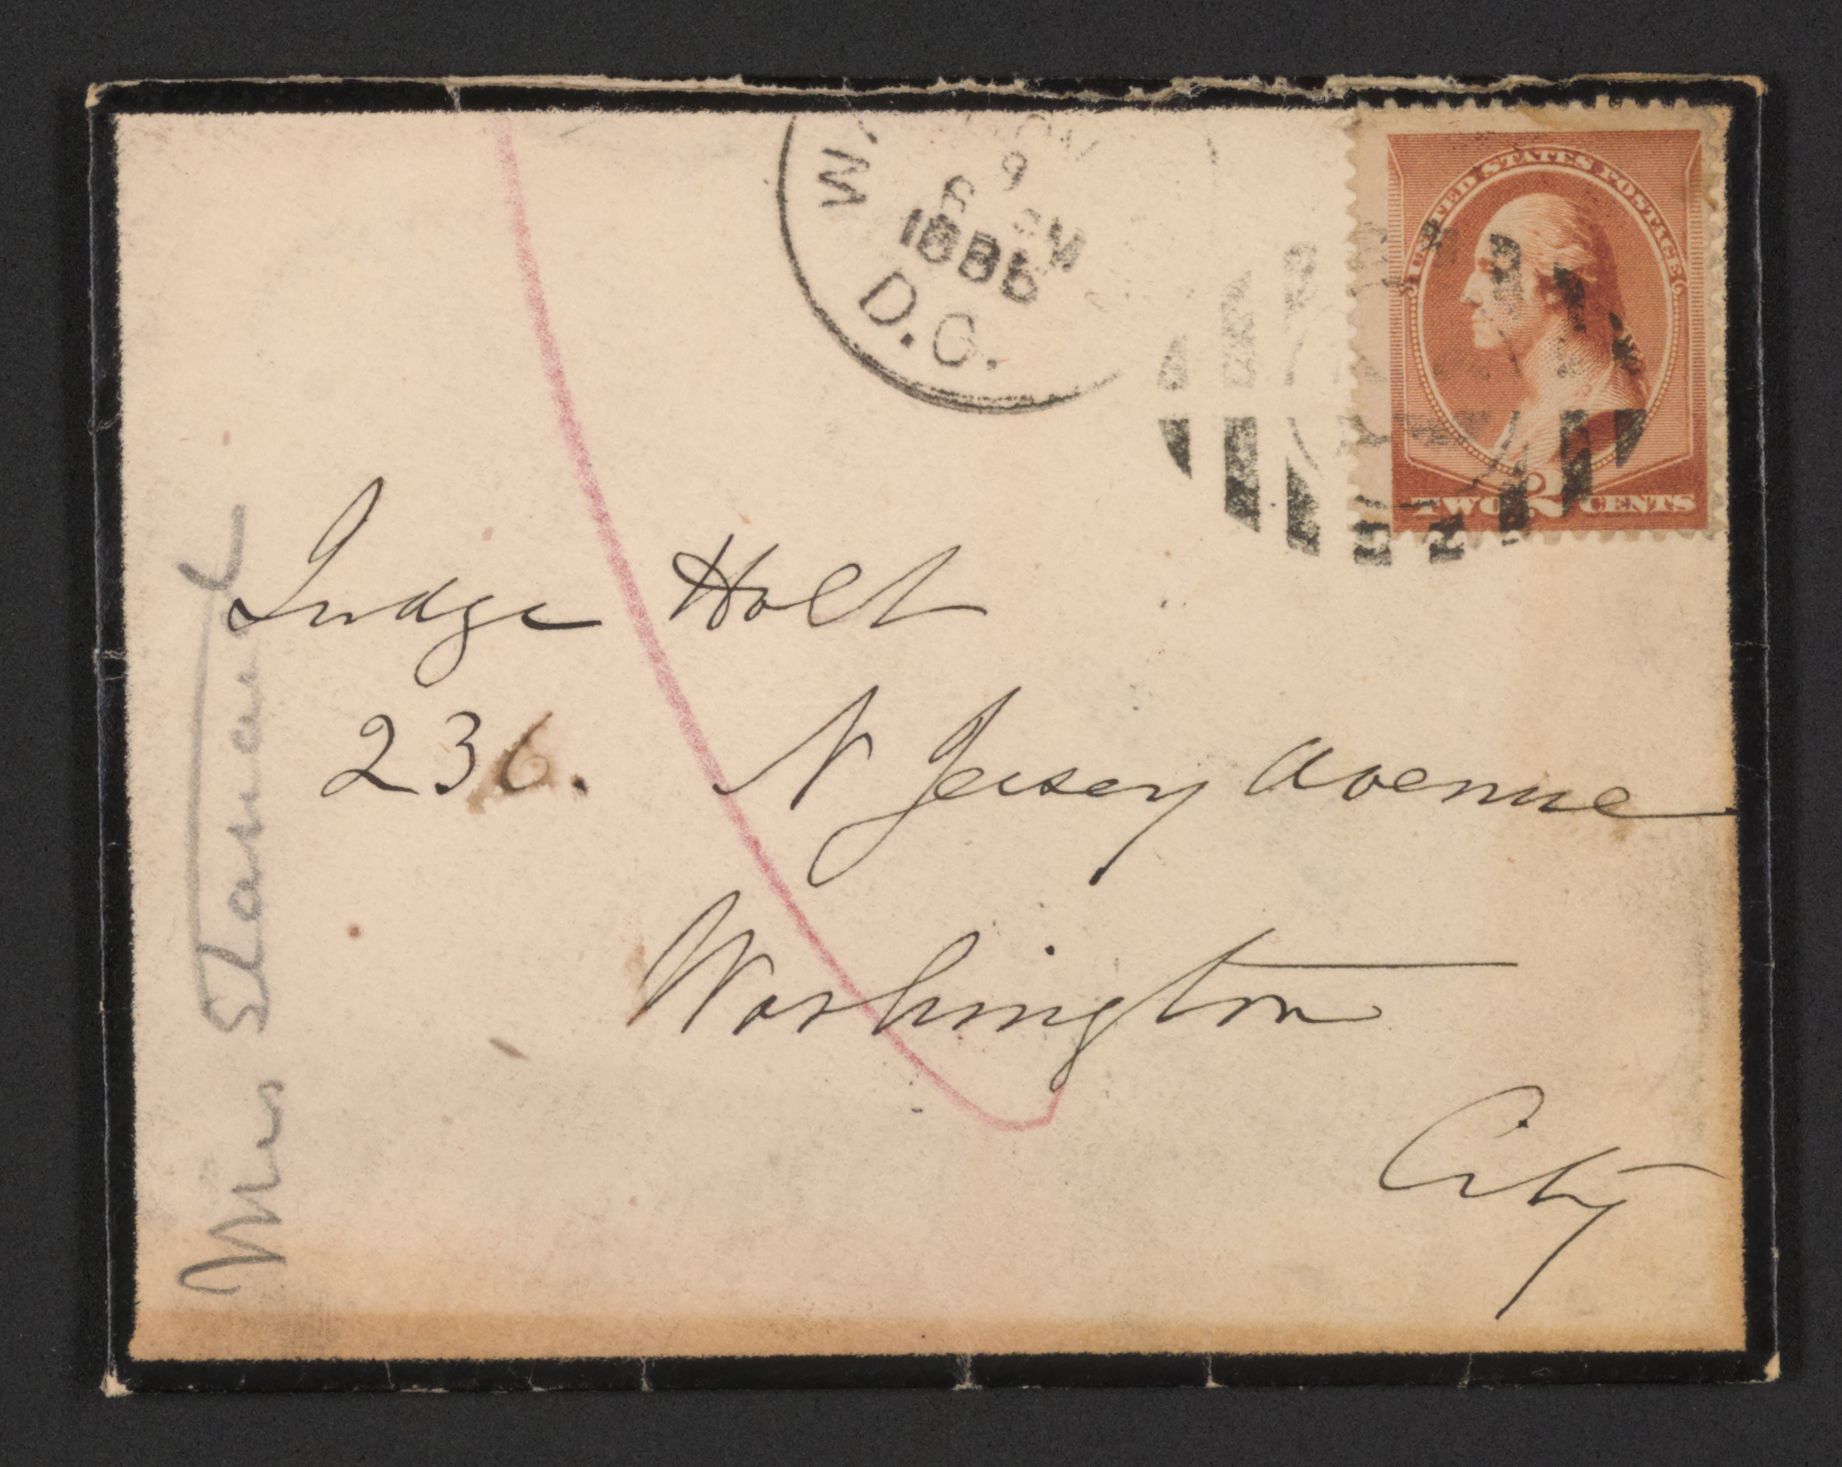 D.C.
UNITED STATES POSTAGE
TWO 2 CENTS
Judge Holt
236. N Jersey Avenue
Washington
City
Mrs